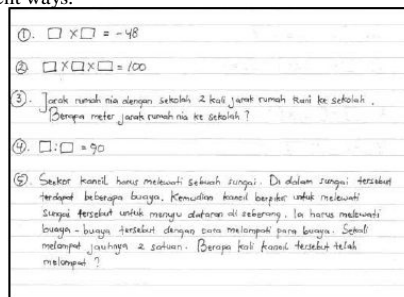 ent ways.
①. □ × □ = -48
② □ × □ × □ = 100
③. Jarak rumah nia dengan sekolah 2 kali jarak rumah Rani ke sekolah.
Berapa meter jarak rumah nia ke sekolah ?
④. □ : □ = 90
⑤. Seekor kancil harus melewati sebuah sungai. Di dalam sungai tersebut
terdapat beberapa buaya. Kemudian kancil berpikir untuk melewati
sungai tersebut untuk menuju dataran di seberang. Ia harus melewati
buaya - buaya tersebut dengan cara melompati para buaya. Sekali
melompat jauhnya 2 satuan. Berapa kali kancil tersebut telah
melompat ?